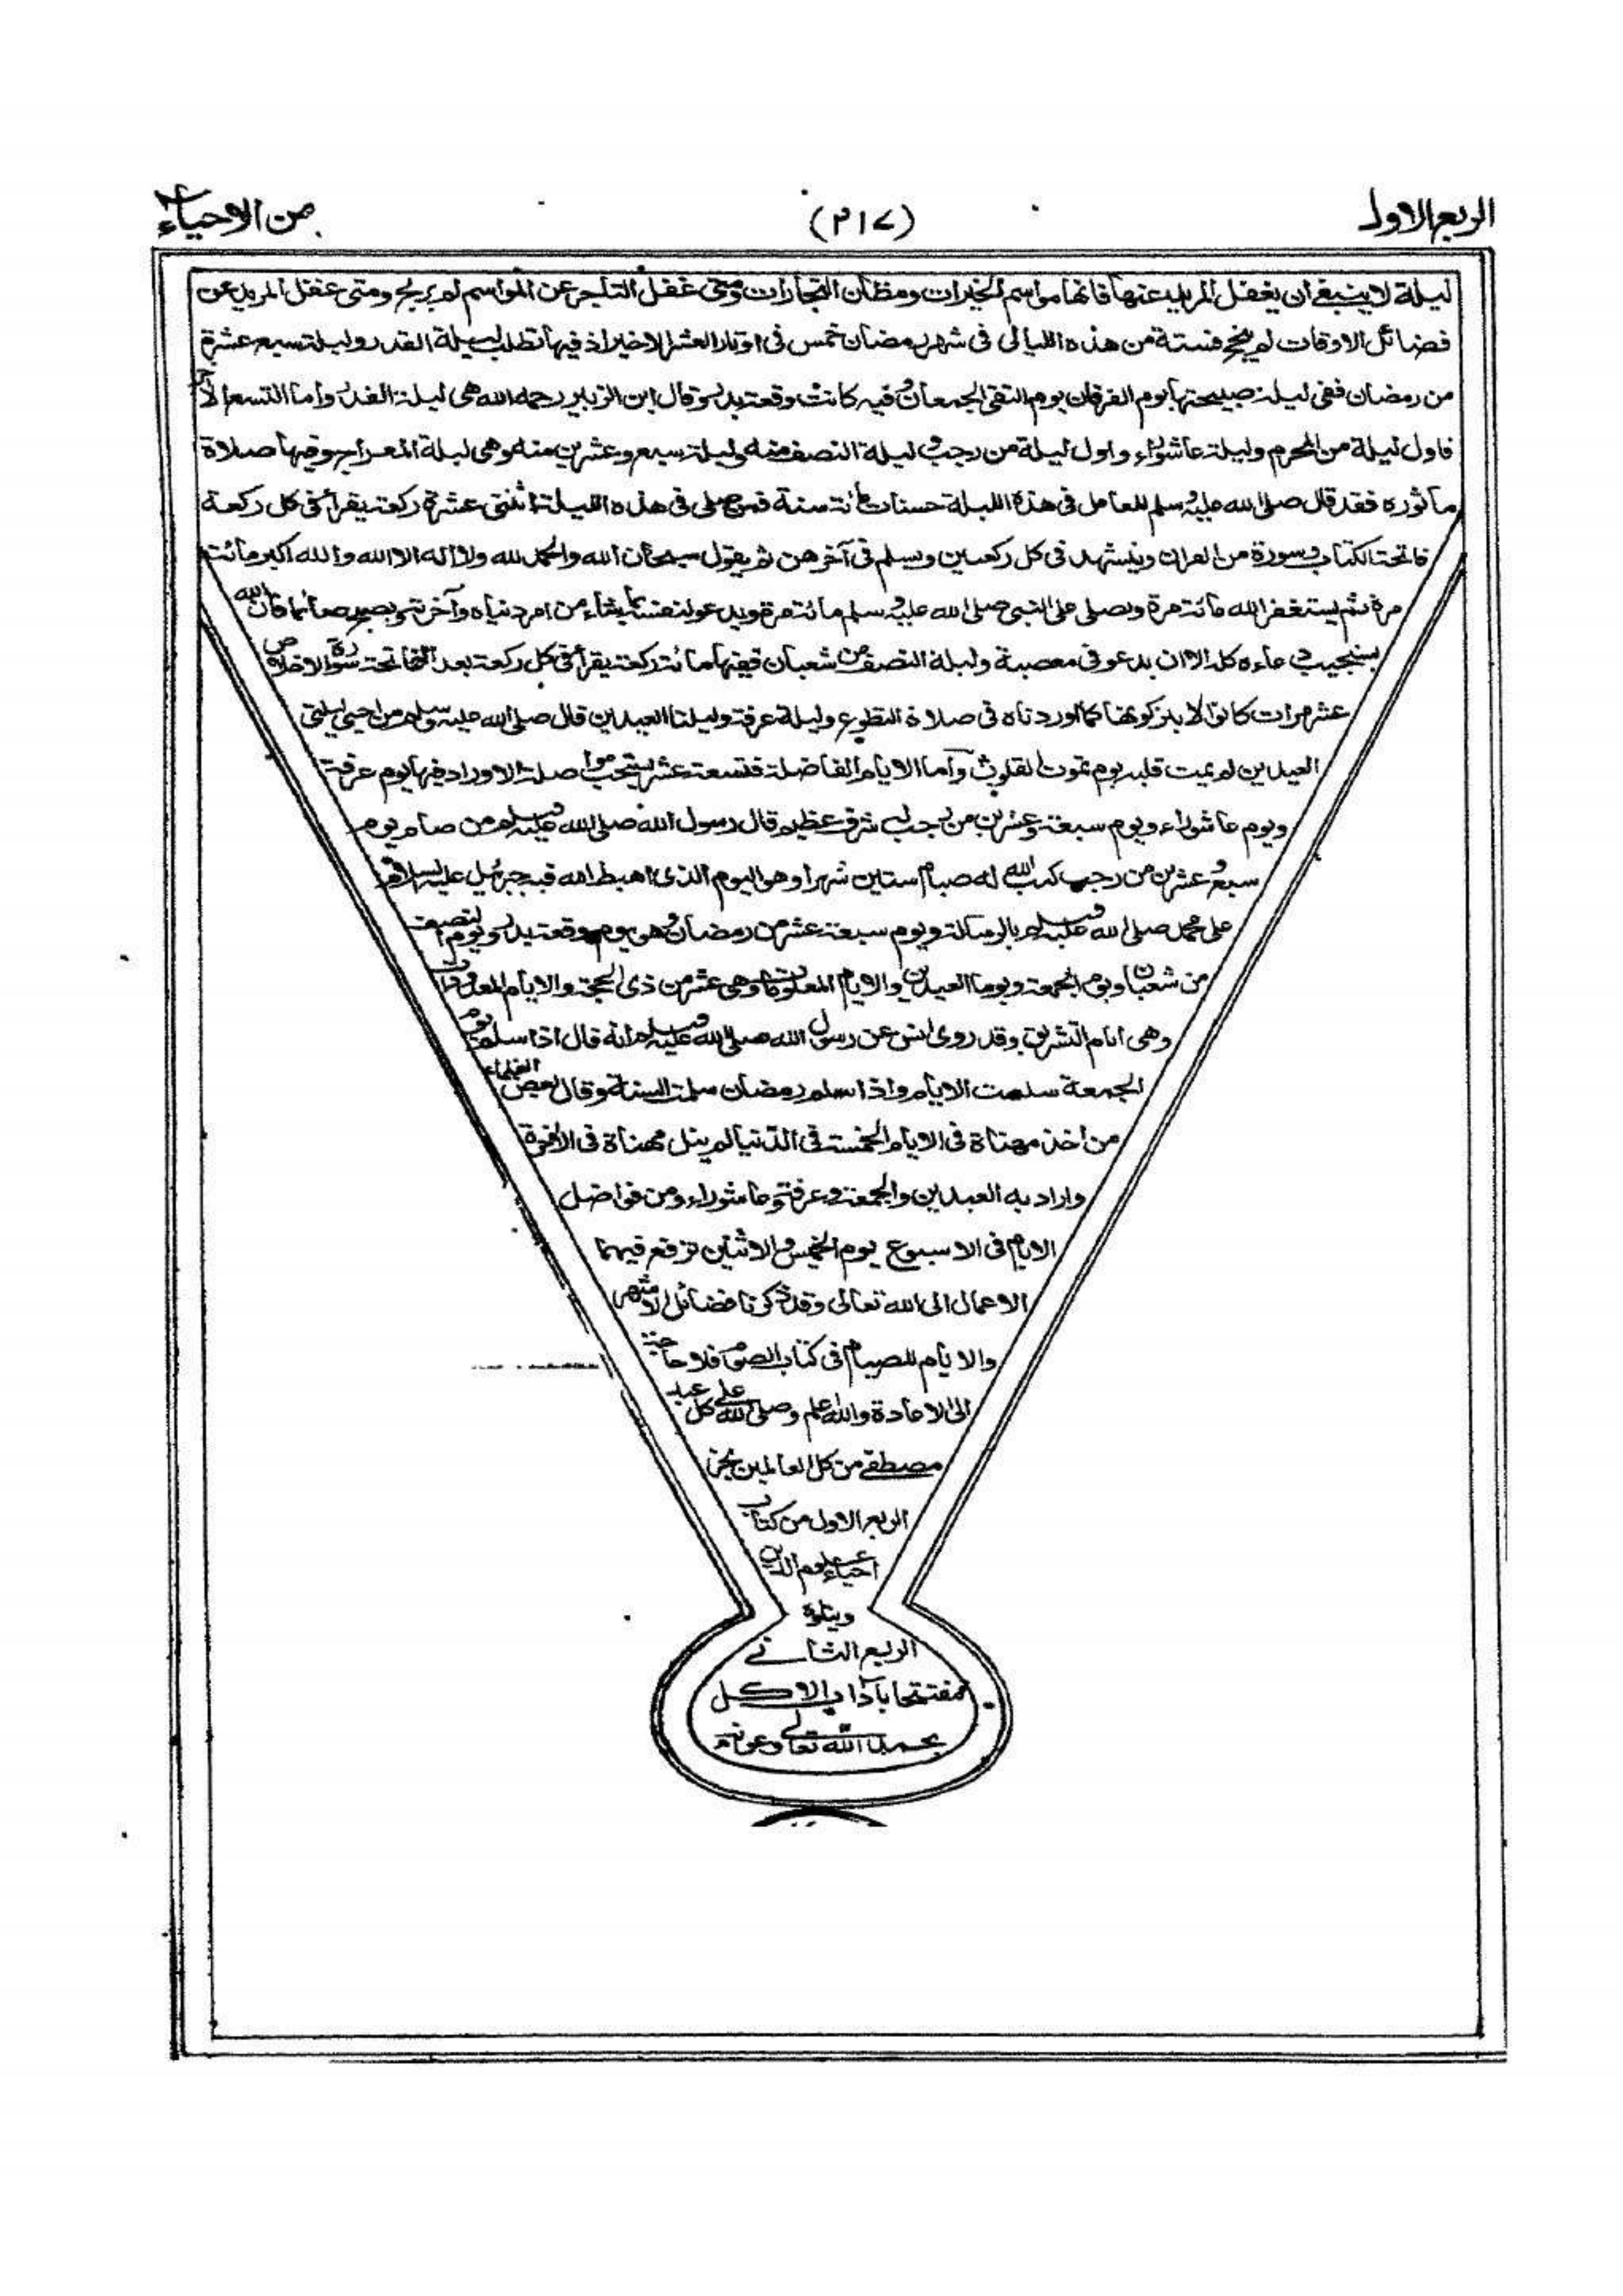 الربع الاول
(٣١٧)
من الاحياء
ليلة لا ينبغى ان يغفل المريد عنها فانها مواسم الخيرات ومظان التجارات ومتى غفل التاجر عن المواسم لم يربح ومتى غفل المريد عن
فضائل الاوقات لم ينجح فستة من هذه الليالى فى شهر رمضان خمس فى اوتار العشر الاخير اذ فيها تطلب ليلة القدر وليلة سبع عشرة
من رمضان فهى ليلة صبيحتها يوم الفرقان يوم التقى الجمعان فيه كانت وقعة بدر وقال ابن الزبير رحمه الله هى ليلة القدر واما التسع الاخر
فاول ليلة من المحرم وليلة عاشوراء واول ليلة من رجب وليلة النصف منه وليلة سبع وعشرين منه وهى ليلة المعراج وفيها صلاة
مأثورة فقد قال صلى الله عليه وسلم للعامل فى هذه الليلة حسنات مائة سنة فمن صلى فى هذه الليلة اثنتى عشرة ركعة يقرأ فى كل ركعة
فاتحة الكتاب وسورة من القران ويتشهد فى كل ركعتين ويسلم فى آخرهن ثم يقول سبحان الله والحمد لله ولا اله الا الله والله اكبر مائة
مرة ثم يستغفر الله مائة مرة ويصلى على النبى صلى الله عليه وسلم مائة مرة ويدعو لنفسه بما يشاء من امر دنياه وآخرته ويصبح صائما فان الله
يستجيب دعاءه كله الا ان يدعو فى معصية وليلة النصف من شعبان ففيها مائة ركعة يقرأ فى كل ركعة بعد الفاتحة سورة الاخلاص
عشر مرات كانوا لا يتركونها كما اوردناه فى صلاة التطوع وليلة عرفة وليلتا العيدين قال صلى الله عليه وسلم من احيى ليلتى
العيدين لم يمت قلبه يوم تموت القلوب واما الايام الفاضلة فتسعة عشر يستحب مواصلة الاوراد فيها يوم عرفة
ويوم عاشوراء ويوم سبعة وعشرين من رجب له شرف عظيم قال رسول الله صلى الله عليه وسلم من صام يوم
سبع وعشرين من رجب كتب الله له صيام ستين شهرا وهو اليوم الذى اهبط الله فيه جبرئيل عليه السلام
على محمد صلى الله عليه وسلم بالرسالة ويوم سبعة عشر من رمضان وهى يوم وقعة بدر ويوم النصف
من شعبان ويوم الجمعة ويوما العيدين والايام المعلومات وهى عشر من ذى الحجة والايام المعدودات
وهى ايام التشريق وقد روى انس عن رسول الله صلى الله عليه وسلم انه قال اذا سلم يوم
الجمعة سلمت الايام واذا سلم رمضان سلمت السنة وقال بعض العلماء
من اخذ مهناة فى الايام الخمسة فى الدنيا لم ينل مهناة فى الآخرة
واراد به العيدين والجمعة وعرفة وعاشوراء ومن فواضل
الايام فى الاسبوع يوم الخميس والاثنين ترفع فيهما
الاعمال الى الله تعالى وقد ذكرنا فضائل الاشهر
والايام للصيام فى كتاب الصوم فلا حاجة
الى الاعادة والله اعلم وصلى الله على كل عبد
مصطفى من كل العالمين نجز
الربع الاول من كتاب
احياء علوم الدين
ويتلوه
الربع الثانى
مفتتحا بآداب الاكل
بحمد الله تعالى وعونه